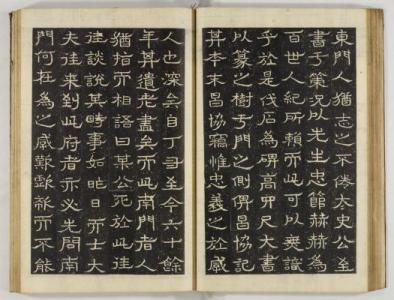 東門人猶志之不倦太史公至
書于策況以先生忠節赫赫爲
百世人紀所賴而此可以無識
乎於是伐石爲碑高尺大書
以篆之樹于門之側俾昌協記
其本末昌協竊惟忠義之於感
人也深矣自丁丑至今六十餘
年其遺老盡矣而此南門者人
猶指而相語曰某公死於此往
往談說其時事如昨日亦士大
夫往來到此府者亦必先問南
門何在爲之感歎歔欷而不能